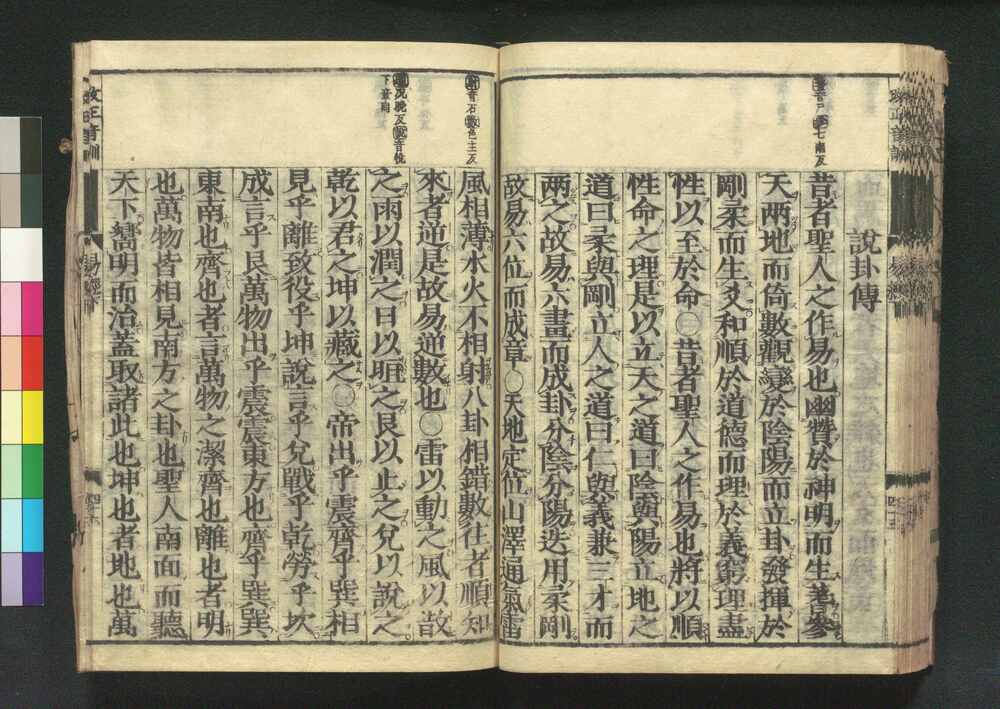 說卦傳
昔者聖人之作易也幽贊於神明而生蓍參
天兩地而倚數觀變於陰陽而立卦發揮於
剛柔而生爻和順於道德而理於義窮理盡
性以至於命○昔者聖人之作易也將以順
性命之理是以立天之道曰陰與陽立地之
道曰柔與剛立人之道曰仁與義兼三才而
兩之故易六畫而成卦分陰分陽迭用柔剛
故易六位而成章○天地定位山澤通氣雷
音石 色主反
風相薄水火不相射八卦相錯數往者順知
來者逆是故易逆數也○雷以動之風以散
之雨以潤之日以晅之艮以止之兌以說之
乾以君之坤以藏之○帝出乎震齊乎巽相
見乎離致役乎坤說言乎兌戰乎乾勞乎坎
成言乎艮萬物出乎震震東方也齊乎巽巽
東南也齊也者言萬物之潔齊也離也者明
也萬物皆相見南方之卦也聖人南面而聽
天下嚮明而治蓋取諸此也坤也者地也萬
改正音訓
易經